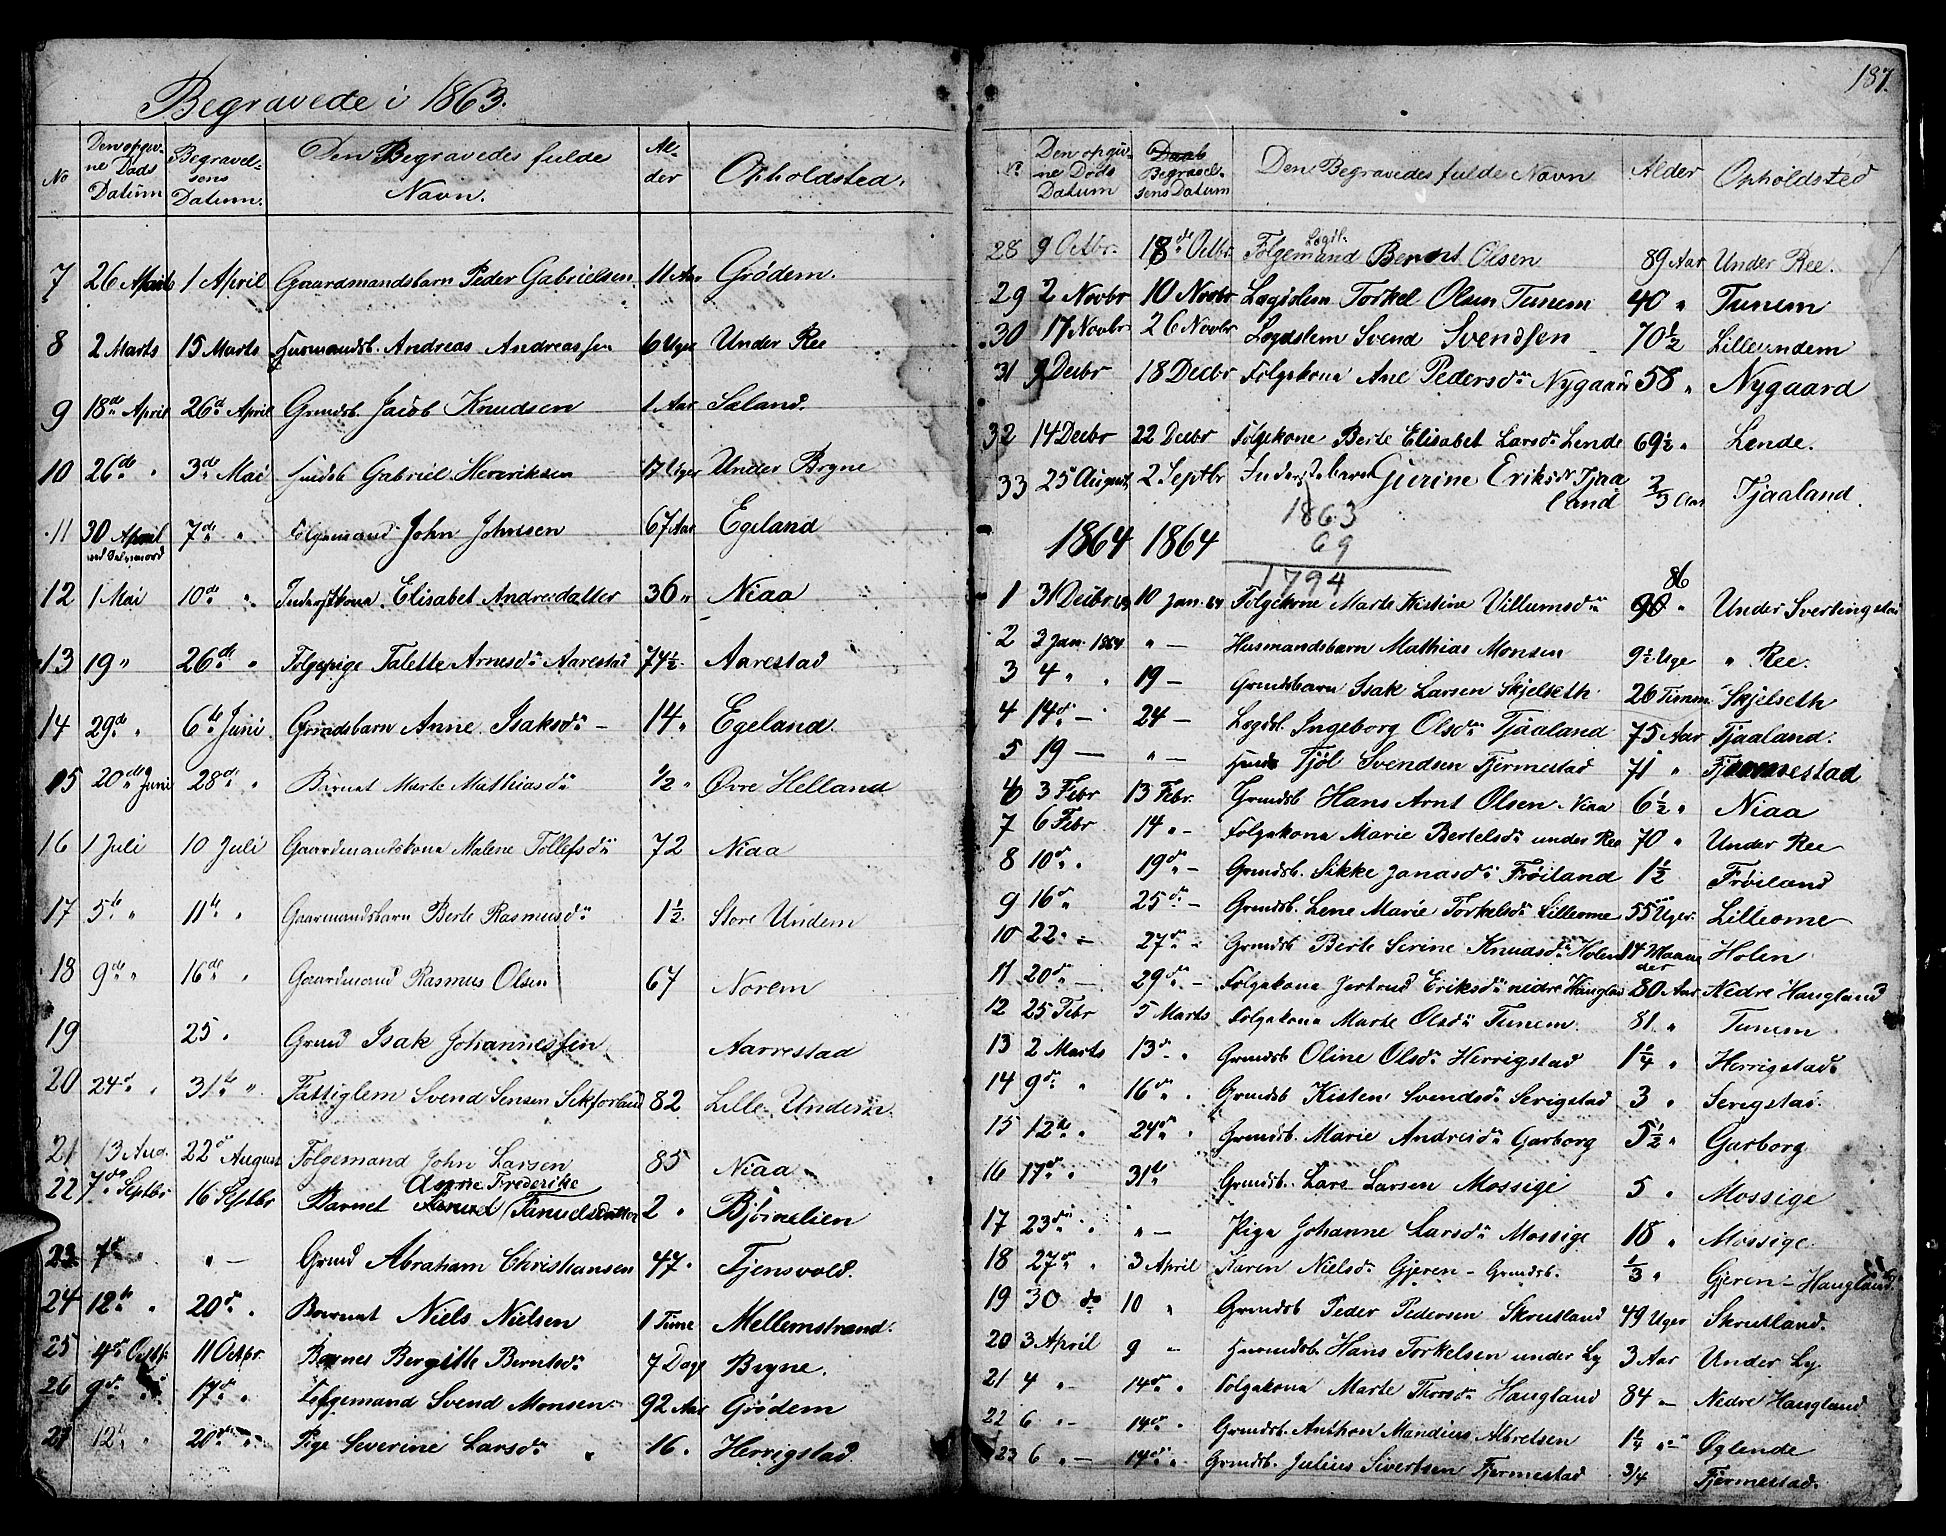 Begravede i 1863.
No Den opgivne Døds Datum Begravelsens Datum. Den Begravedes fulde Navn. Alder Opholdsted.
7 26 Marts 1 April Gaardmandsbarn Peder Gabrielsen 11 Aar Grødem.
8 2 Marts 15 Marts Husmandsb. Andreas Andreassen 6 Uger Under Ree
9 18de April 26de April Grmdsb. Jacob Knudsen 1 Aar Saland.
10 26de " 3de Mai Husmdsb Gabriel Henriksen 17 Uger Under Bryne
11 30 April ved Selvmord 7de " Følgemand John Johnsen 67 Aar Egeland
12 1 Mai 10de " Inderstkona Elisabet Andreasdatter 36 " Niaa
13 19 " 26de " Følgepige Talette Arnesdr Aarestad 74½ Aarestad
14 29de " 6te Juni Grmdsbarn Anne Isaksdr - 14 " Egeland.
15 20de Juni 28de " Barnet Marte Mathiasdr ½ " Øvre Helland
16 1 Juli 10 Juli Gaardmandskona Malene Tollefsdr 72 Niaa
17 5te " 11te " Gaarmandsbarn Berte Rasmusdr 1½ Store Undem
18 9de " 16de " Gaardmand Rasmus Olsen 67 Norem
19 25 " Grmd Isak Johannessen Aarrestad
20 24de " 31te " Fattiglem Svend Jensen 82 Lille Undem
21 13 Aug. 22de August Følgemand John Larsen 85 Niaa
Anne Frederike
22 7de Septbr 16 Septbr Barnet Tanielsdatter 2 " Bjørnelien
23 7de " " - Grmd Abraham Christiansen 47 " Tjensvold.
24 12te " 20de " Barnet Niels Nielsen 1 Time Mellemstrand.
25 4de Octbr 11 Octbr. Barnet Bergitte Berntsdr 7 Dage Bryne.
26 9de " 17de " Følgemand Svend Monsen 92 Aar Grødem
27 12te " 20de " Pige Severine Larsdr 16 " Herrigstad
187.
No Den opgivne Døds Datum Daab Begravelsens Datum Den Begravedes fulde Navn Alder Opholdsted
28 9 Octbr. 18de Octbr Lægdl. Følgemand Bernt Olsen 89 Aar Under Ree.
29 2 Novbr 10 Novbr Lægdslem Torkel Olsen Tunem 40 " Tunem
30 17 Novbr 26 Novbr Lægdslem Svend Svendsen 70½ Lilleundem
31 9 Decbr 18 Decbr Følgekona Ane Pedersdr Nygaard 58 " Nygaard
32 14 Decbr 22 Decbr Følgekone Berte Elisabet Larsdr Lende 69½ " Lende.
33 25 August 2 Septbr Inderstebarn Gurine Eriksdr Tjaaland ⅔ Aar Tjaaland.
1863
69
1794
1864 1864
1 31 Decbr 63 10 Jan. 64 Følgekone Marte Kistine Villumsdr 90 86 " Under Svertingstad
2 3 Jan. 1864 " - Husmandsbarn Mathias Monsen 9½ Uge " Ree.
3 4 " " 19 - Grmdsbarn Isak Larsen Skjelseth 26 Timer Skjelseth
4 14de - 24 - Lægdsl. Ingeborg Olsdr Tjaaland 75 Aar Tjaaland.
5 19 - " - Tjøl Svendsen Fjermestad 71 " Fjermestad
6 3 Febr 13 Febr. Grmdsb Hans Arnt Olsen Niaa 6½ " Niaa
7 6 Febr 14 " - Følgekona Marie Bertelsdr under Ree 70 " Under Ree
8 10de " 19de - Grmdsb. Sikke Janasdr Frøiland 1½ Frøiland
9 16de " 25de - Grmdsb. Lene Marie Torkelsdr Lilleome 55 Uger Lilleome
10 22 " - 27de - Grmdsb Berte Serine Knudsdr Holen 14 Maaneder Holen
11 20de - 29de - Følgekona Jertrud Eriksdr nedre Haugland 80 Aar Nedre Haugland
12 25 Febr 5 Marts Følgekona Marte Olsdr Tunem 81 " Tunem
13 2 Marts 13de " Grmdsb Oline Olsdr Herrigstad 1¼ " Herrigstad
14 9de " 16de " Grmdsb Kisten Svendsdr Serigstad 3 " Serigstad.
15 12te " 24de " Grmdsb. Marie Andresdr Garborg 5½ " Garborg
16 17de " 31te Grmdsb. Lars Larsen Mossige 5 " Mossige
17 23de " " - Pige Johanne Larsdr Mossige 18 " Mossige
18 27de " 3 April Karen Nielsdr Gjeren - Grmdsb. ⅓ " Gjeren - Haugland
19 30 do 10 " Grmdsb Peder Pedersen Skrutland 49 Uger Skrutland.
20 3 April 9 " Husmdsb. Hans Torkelsen under Ly 3 Aar Under Ly
21 4 " 14de " Følgekona Marte Thorsdr Haugland 84 " Nedre Haugland
22 6 " - 14de " Grmdsb. Anthon Mandius Albretsen 1¼ " Øglende
23 6 " - 14de " Grmdsb. Julius Sivertsen Fjermestad 3/4 Fjermestad.